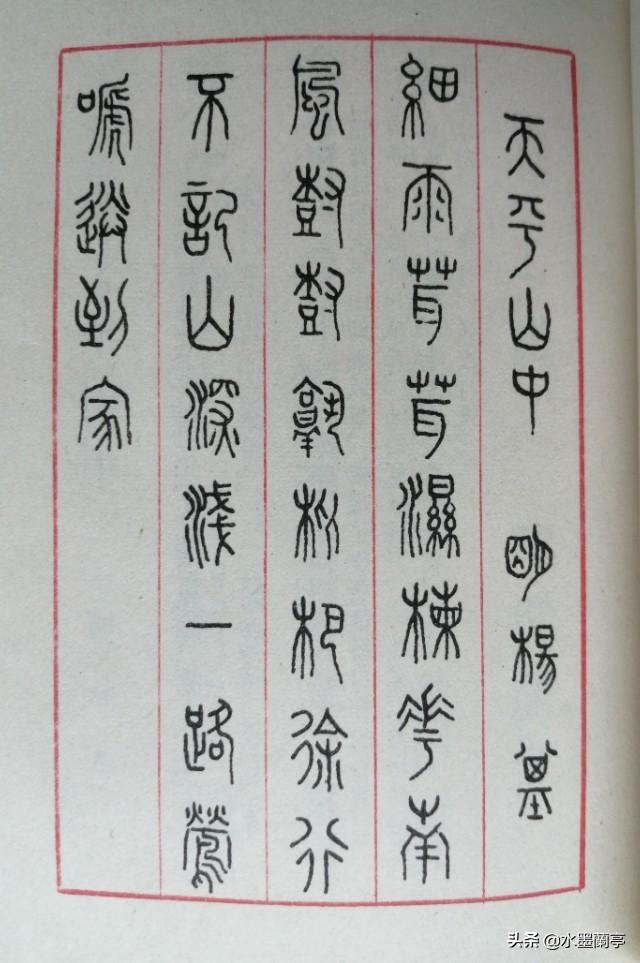 天平山中 明 楊 基
細雨茸茸濕楝花南
風樹樹熟枇杷徐行
不記山深淺一路鶯
嗁送到家
头条 @水墨蘭亭